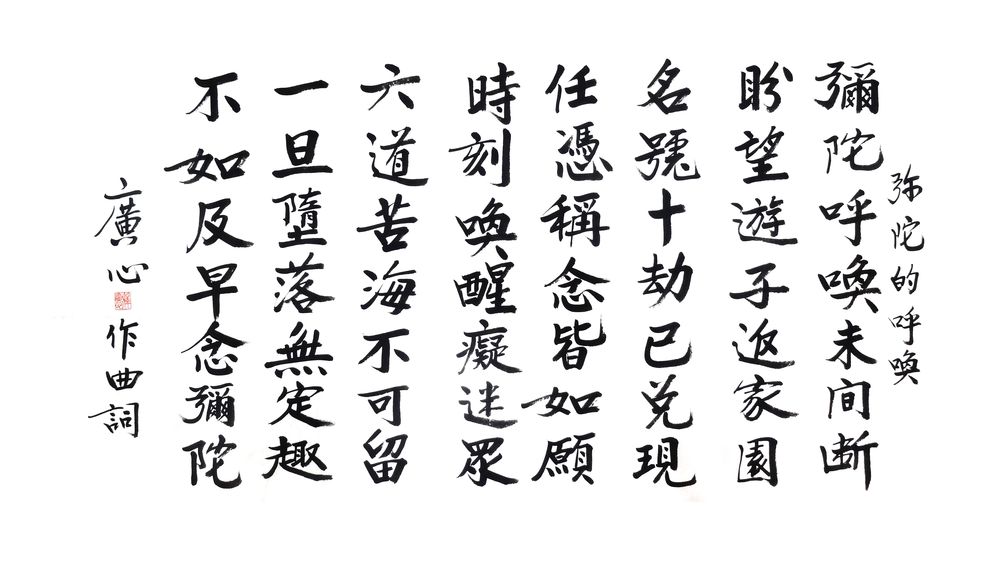 弥陀的呼喚
彌陀呼喚未间断
盼望遊子返家園
名號十劫已兑現
任憑稱念皆如願
時刻喚醒癡迷眾
六道苦海不可留
一旦墮落無定趣
不如及早念彌陀
廣心
作曲詞